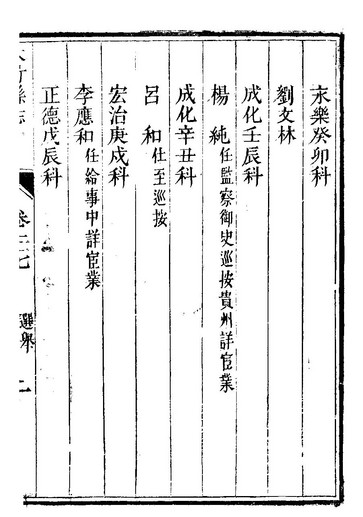 永樂癸卯科
劉文林
成化壬辰科
楊 純任監察御史巡按貴州詳宦業
成化辛丑科
呂 和仕至巡按
宏治庚戌科
李應和任給事中詳宦業
正德戊辰科
竹縣志
卷二七
選舉